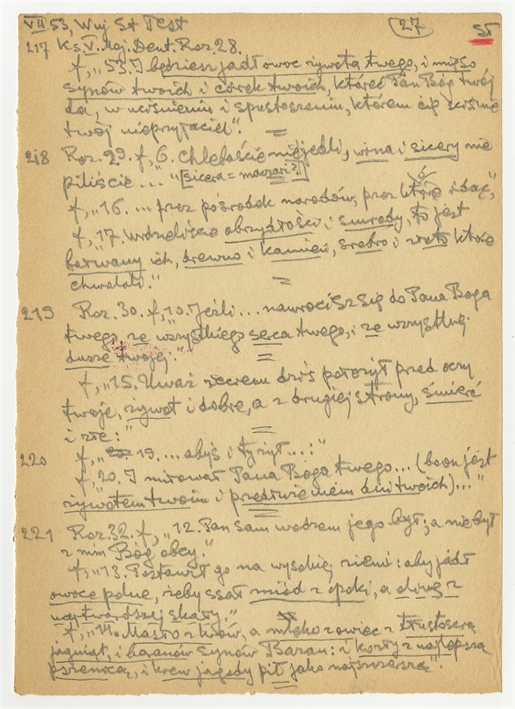 VII 53, Wuj St Test 27 ST
217 Ks. V. Moj. Deut. Roz. 28.
f, „53. I będziesz jadł owoc żywota twego, i mięso
synów twoich i córek twoich, któreć Pan Bóg twój
da, w uciśnieniu i spustoszeniu, którem cię ściśnie
twój nieprzyjaciel".
218 Roz. 29. f, 6. Chlebaście nie jedli, wina i sicery nie
piliście..." [sicera =
f, „16. ... przez pośrodek narodów, przez które idąc,"
f, „17. Widzieliście obrzydłości i smrody, to jest
bałwany ich, drewno i kamień, srebro i złoto które
chwalili."
219 Roz. 30. f, „10. Jeśli... nawrócisz się do Pana Boga
twego, ze wszystkiego serca twego, i ze wszystkiej
dusze twojej."
f, „15. Uważ żeciem dziś położył przed oczy
twoje, żywot i dobre, a z drugiej strony, śmierć
i złe:"
220 f, „19. ... abyś i ty żył...:"
f, „20. I miłował Pana Boga twego... (bo on jest
żywotem twoim i przedłużeniem dni twoich)..."
221 Roz. 32. f, „12. Pan sam wodzem jego był; a nie był
z nim Bóg obcy."
f, „13. Postawił go na wysokiej ziemi: aby jadł
owoce polne, żeby ssał miód z opoki, a oliwę z
najtwardszej skały,"
f, „14. Masło z krów, a mleko z owiec z tłustością
jagniąt, i baranów synów Bazan: i kozły z najlepszą
pszenicą, i krew jagody pił jako najszczerszą":